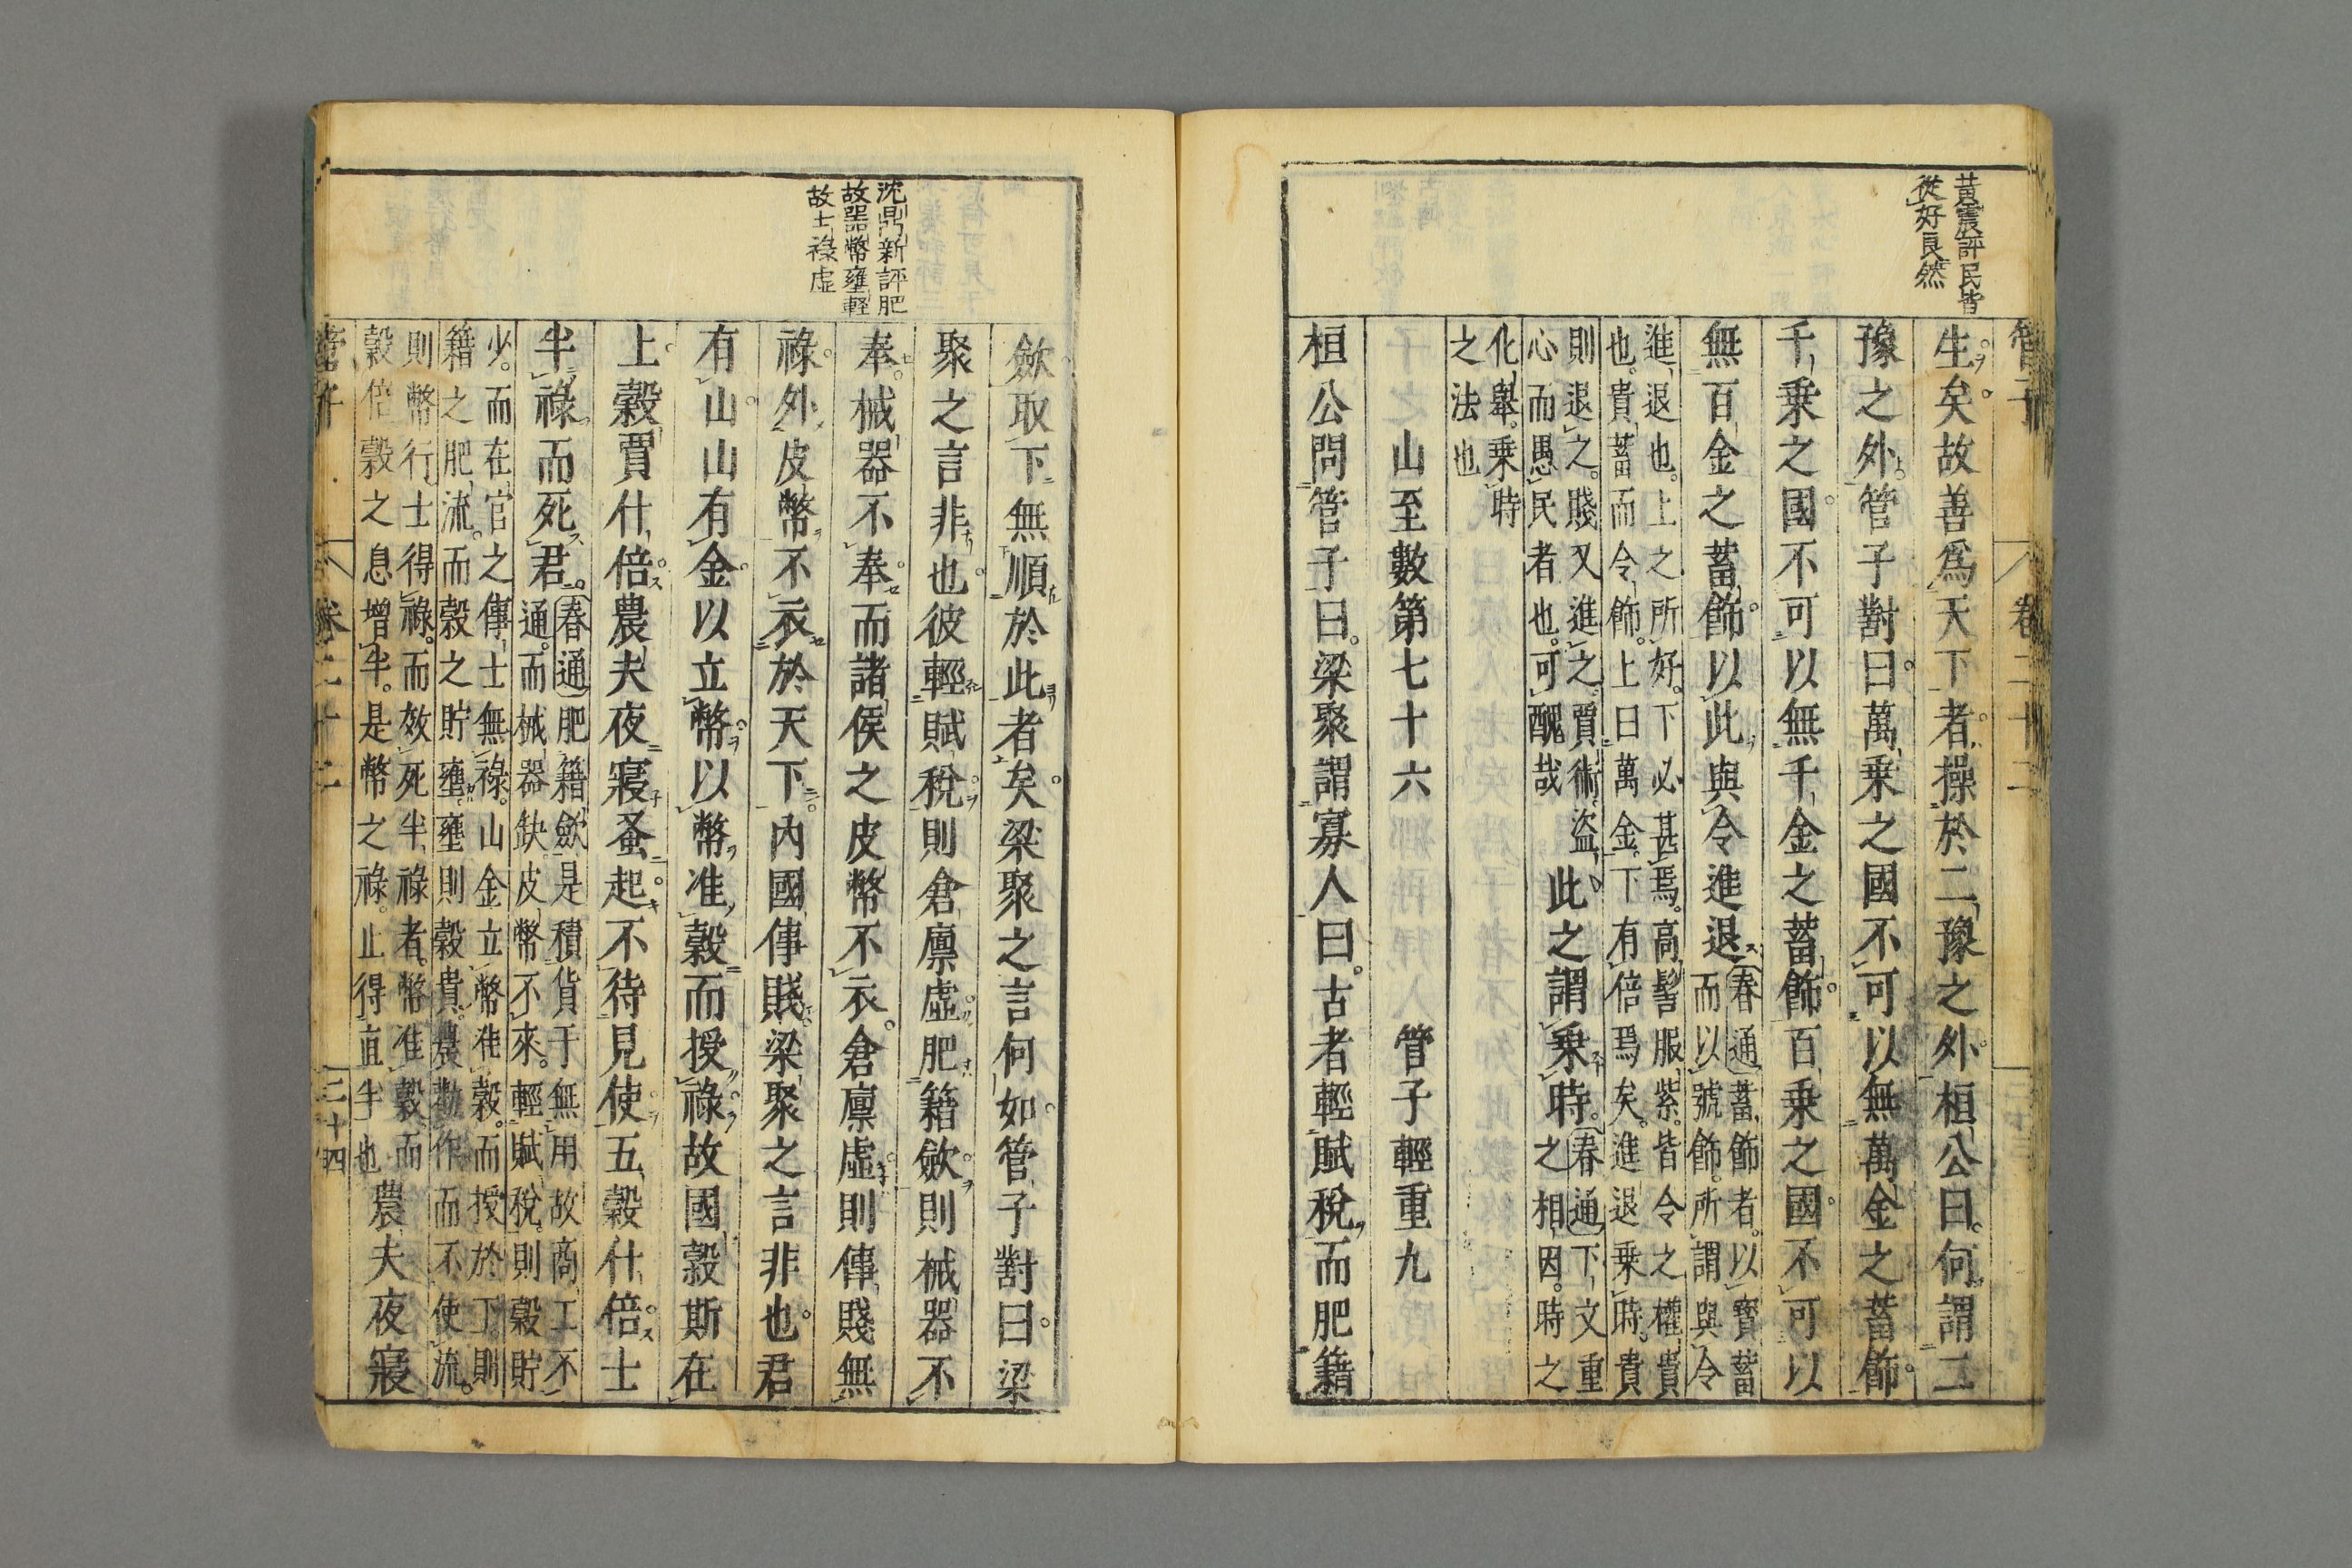 管子 卷二十二
黃震評民皆
從好良然
生矣故善爲天下者操於二豫之外桓公曰何謂二
豫之外管子對曰萬乗之國不可以無萬金之蓄飾
千乗之國不可以無千金之蓄飾百乗之國不可以
無百金之蓄飾以此與令進退春通蓄飾者以寳蓄
而以號飾所謂與令
進退也上之所好下必甚焉高髻服紫皆令之權貴
也貴蓄而令飾上曰萬金下有倍焉矣進退乗時貴
則退之賤又進之賈術盜
心而愚民者也可醜哉
此之謂乗時春通下文重
之相因時之
化舉乗時
之法也
山至數第七十六 管子輕重九
桓公問管子曰梁聚謂寡人曰古者輕賦稅而肥籍
沈鼎新評肥
故器幣壅軽
故士祿虛
歛取下無順於此者矣梁聚之言何如管子對曰梁
聚之言非也彼輕賦稅則倉廩虛肥籍歛則械器不
奉械器不奉而諸侯之皮幣不衣倉廩虛則倳賤無
祿外皮幣不衣於天下內國倳賤梁聚之言非也君
有山山有金以立幣以幣准穀而授祿故國穀斯在
上穀賈什倍農夫夜寢蚤起不待見使五穀什倍士
半祿而死君春通肥籍歛是積貨于無用故商工不
通而械器缺皮幣不來輕賦稅則穀貯
少而在官之倳士無祿山金立幣准穀而授於下則
籍之肥流而穀之貯壅壅則穀貴農勸作而不使流
則幣行士得祿而效死半祿者幣准穀而
穀倍穀之息增半是幣之祿止得直半也
農夫夜寢
管子 卷二十二 二十四